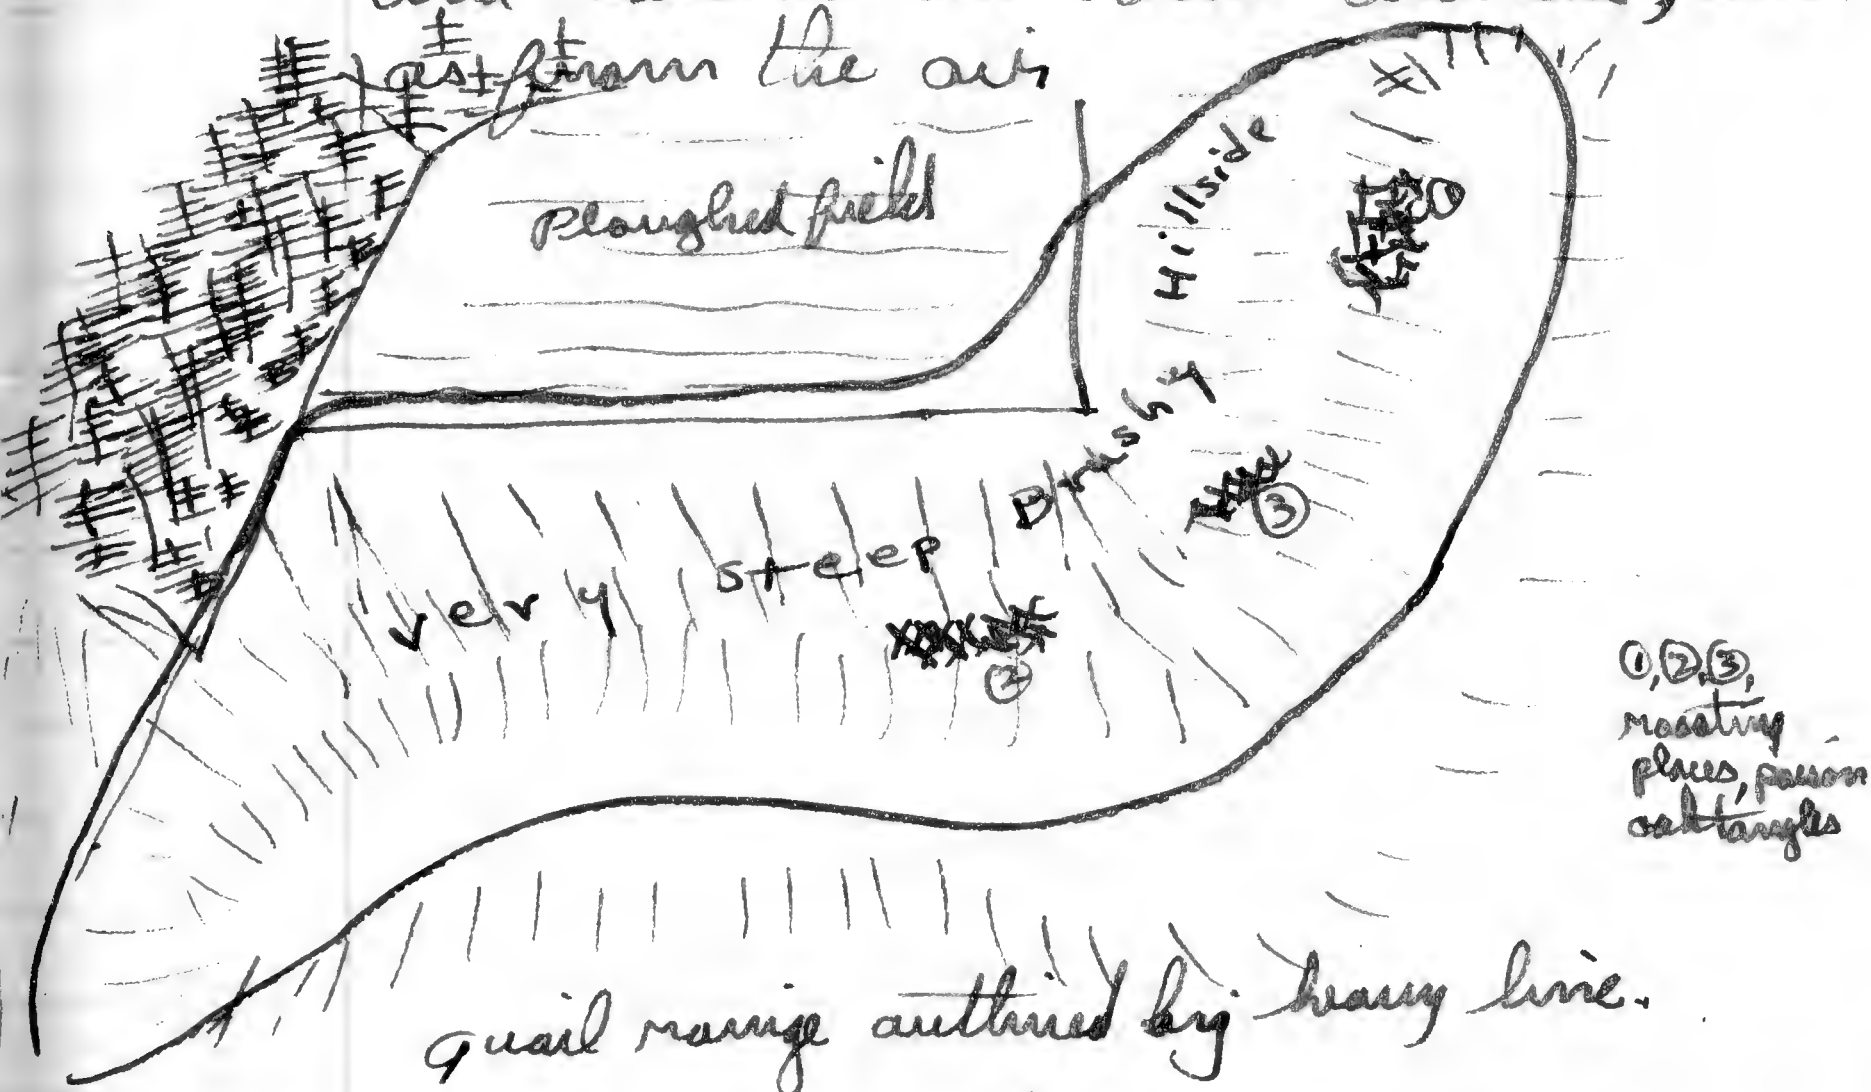 as from the air,
Ploughed field
Brushy Hillside
①
③
very steep
②
①, ②, ③,
roosting
places, poison
oak tangles
quail range outlined by heavy line.